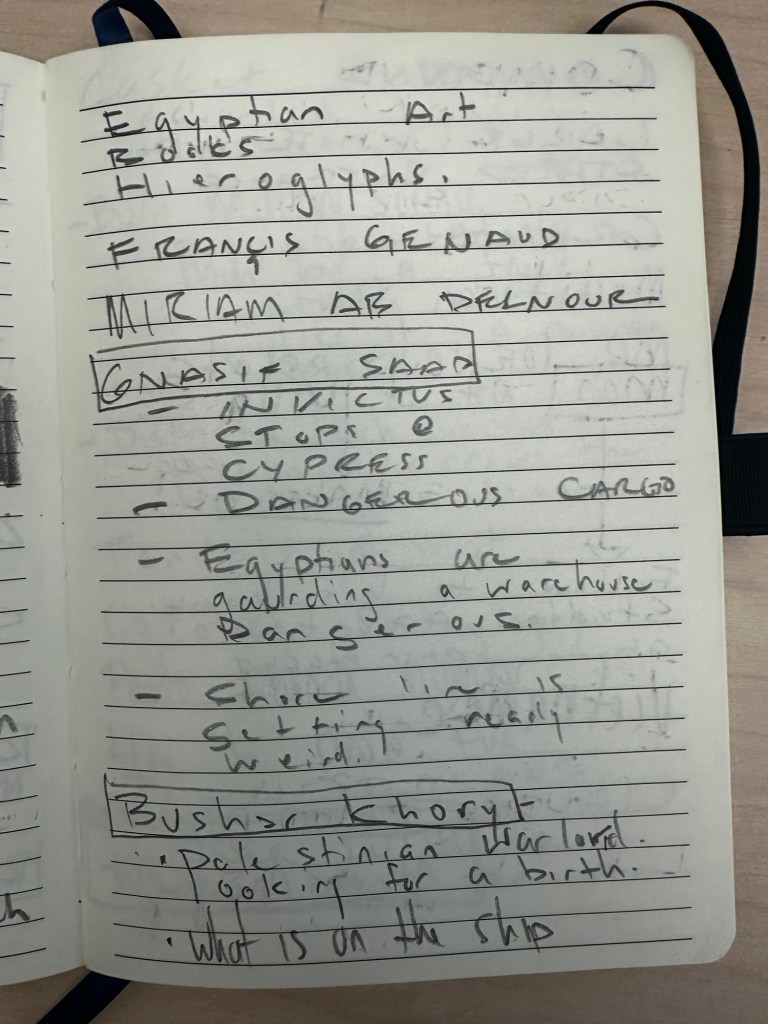 Egyptian Art
Books
Hieroglyphs.
FRANCIS GENAUD
MIRIAM AB DELNOUR
GNASIF SAAD
- INVICTUS
STOPS @
CYPRESS
- DANGEROUS CARGO
- Egyptians are
gaurding a warehouse
Dangerous.
- Shore line is
getting ready
weird.
Bushar Khory -
• Palestinian warlord.
looking for a birth.
• What is on the ship